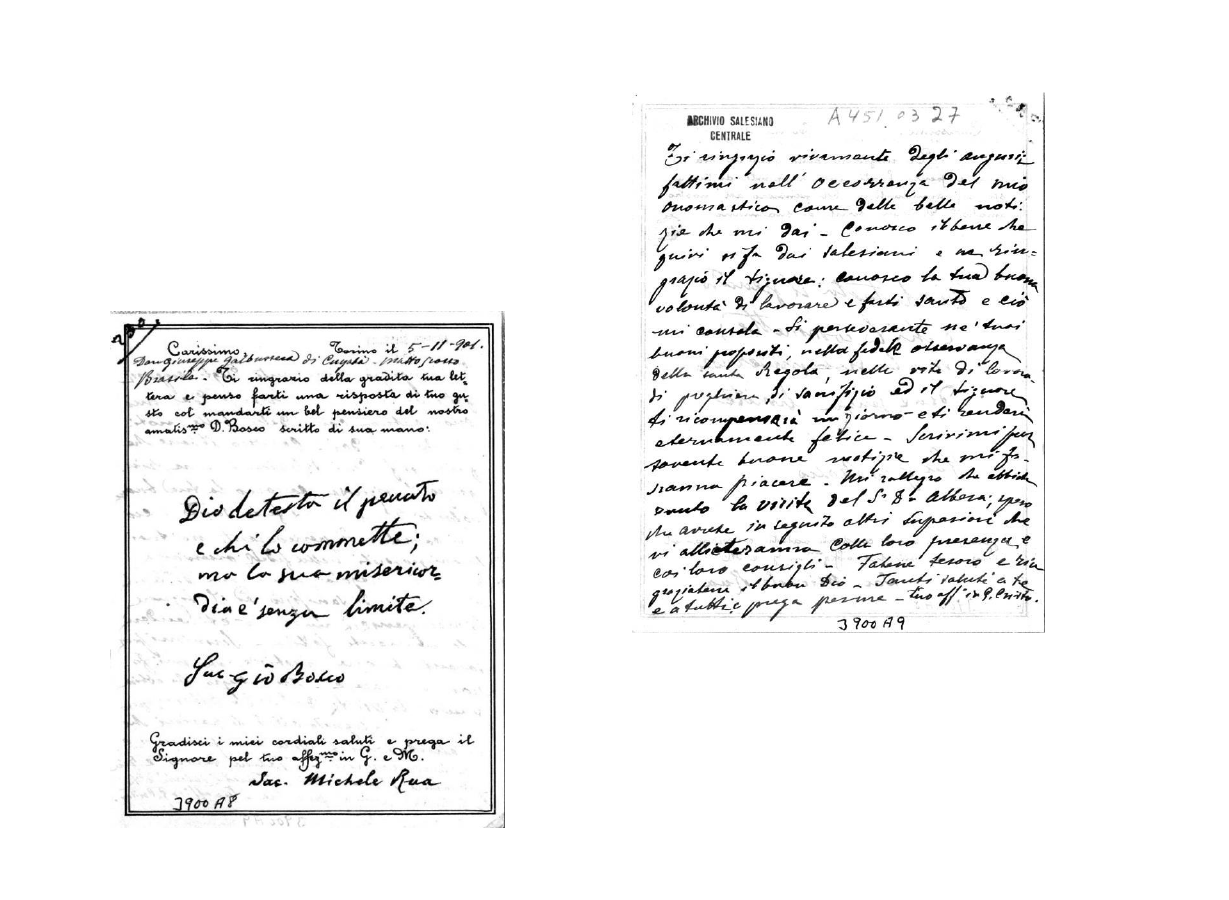 Carissimo, Torino il 5-11-901.
Don Giuseppe di Cuyabá - Matto grosso
Brasile. - Ti ringrazio della gradita tua let-
tera e penso farti una risposta di tuo gu-
sto col mandarti un bel pensiero del nostro
amatis.mo D. Bosco scritto di sua mano:
Dio detesta il peccato
e chi lo commette;
ma la sua misericor-
dia è senza limite.
Sac. Gio Bosco
Gradisci i miei cordiali saluti e prega il
Signore pel tuo affez.mo in G. e M.
Sac. Michele Rua
3900 A8
ARCHIVIO SALESIANO
CENTRALE
A451 03 27
Ti ringrazio vivamente degli augurii
fattimi nell' occorrenza del mio
onomastico come delle belle noti-
zie che mi dai - Conosco il bene che
quivi si fa dai Salesiani e ne rin-
grazio il Signore; conosco la tua buona
volontà di lavorare e farti santo e ciò
mi consola - Sii perseverante ne' tuoi
buoni propositi, nella fedele osservanza
della santa Regola, nella vita di lavoro
di preghiera, di sacrifizio ed il Signore
ti ricompenserà un giorno e ti renderà
eternamente felice - Scrivimi pur
sovente buone notizie che mi fa-
ranno piacere - Mi rallegro che abbiate
avuto la visita del S. D. Albera; spero
che avrete in seguito altri Superiori che
vi allieteranno colla loro presenza e
coi loro consigli - Fatene tesoro e rin-
graziatene il buon Dio - Tanti saluti a te
e a tutti; prega per me - tuo aff. in G. Cristo.
3900 A9